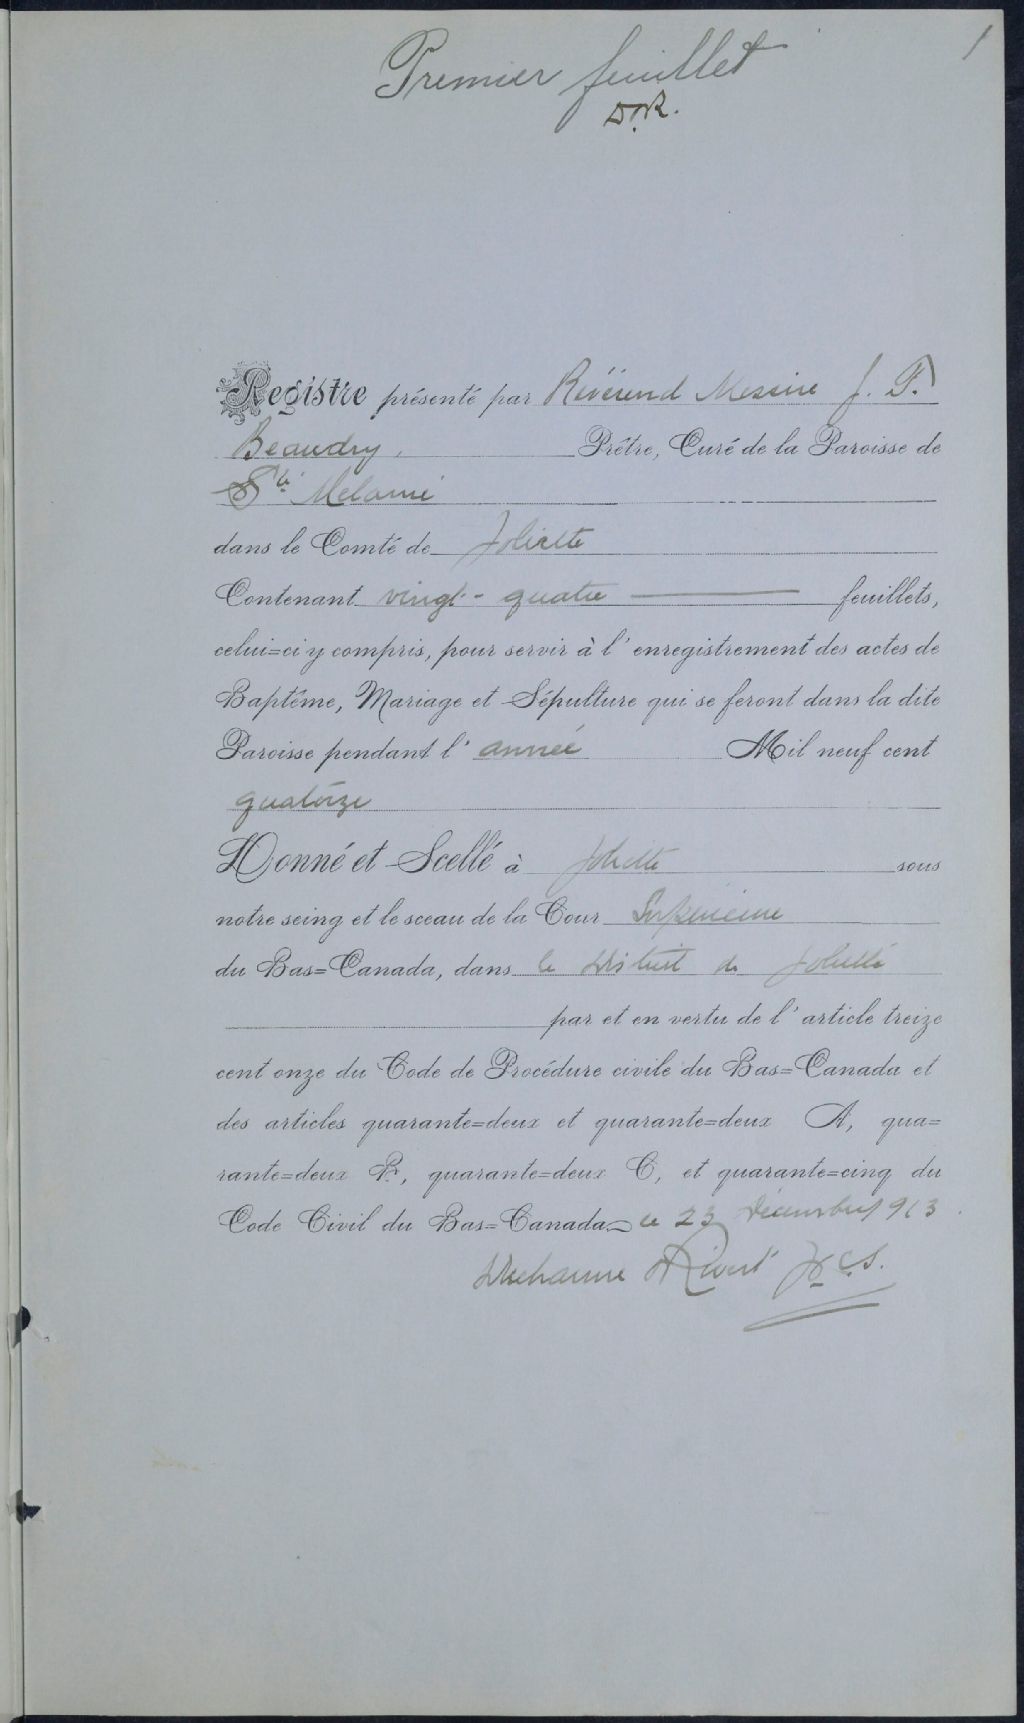 1
Premier feuillet
D.R.
Registre présenté par Révérend Messire J. F.
Beaudry, Prêtre, Curé de la Paroisse de
Ste Melanie
dans le Comté de Joliette
Contenant vingt-quatre feuillets,
celui=ci y compris, pour servir à l'enregistrement des actes de
Baptême, Mariage et Sépulture qui se feront dans la dite
Paroisse pendant l'année Mil neuf cent
quatorze
Donné et Scellé à Joliette sous
notre seing et le sceau de la Cour Supérieure
du Bas=Canada, dans le district de Joliette
par et en vertu de l'article treize
cent onze du Code de Procédure civile du Bas=Canada et
des articles quarante=deux et quarante=deux A, qua=
rante=deux B, quarante=deux C, et quarante=cinq du
Code Civil du Bas=Canada ce 23 décembre 1913
Rivest